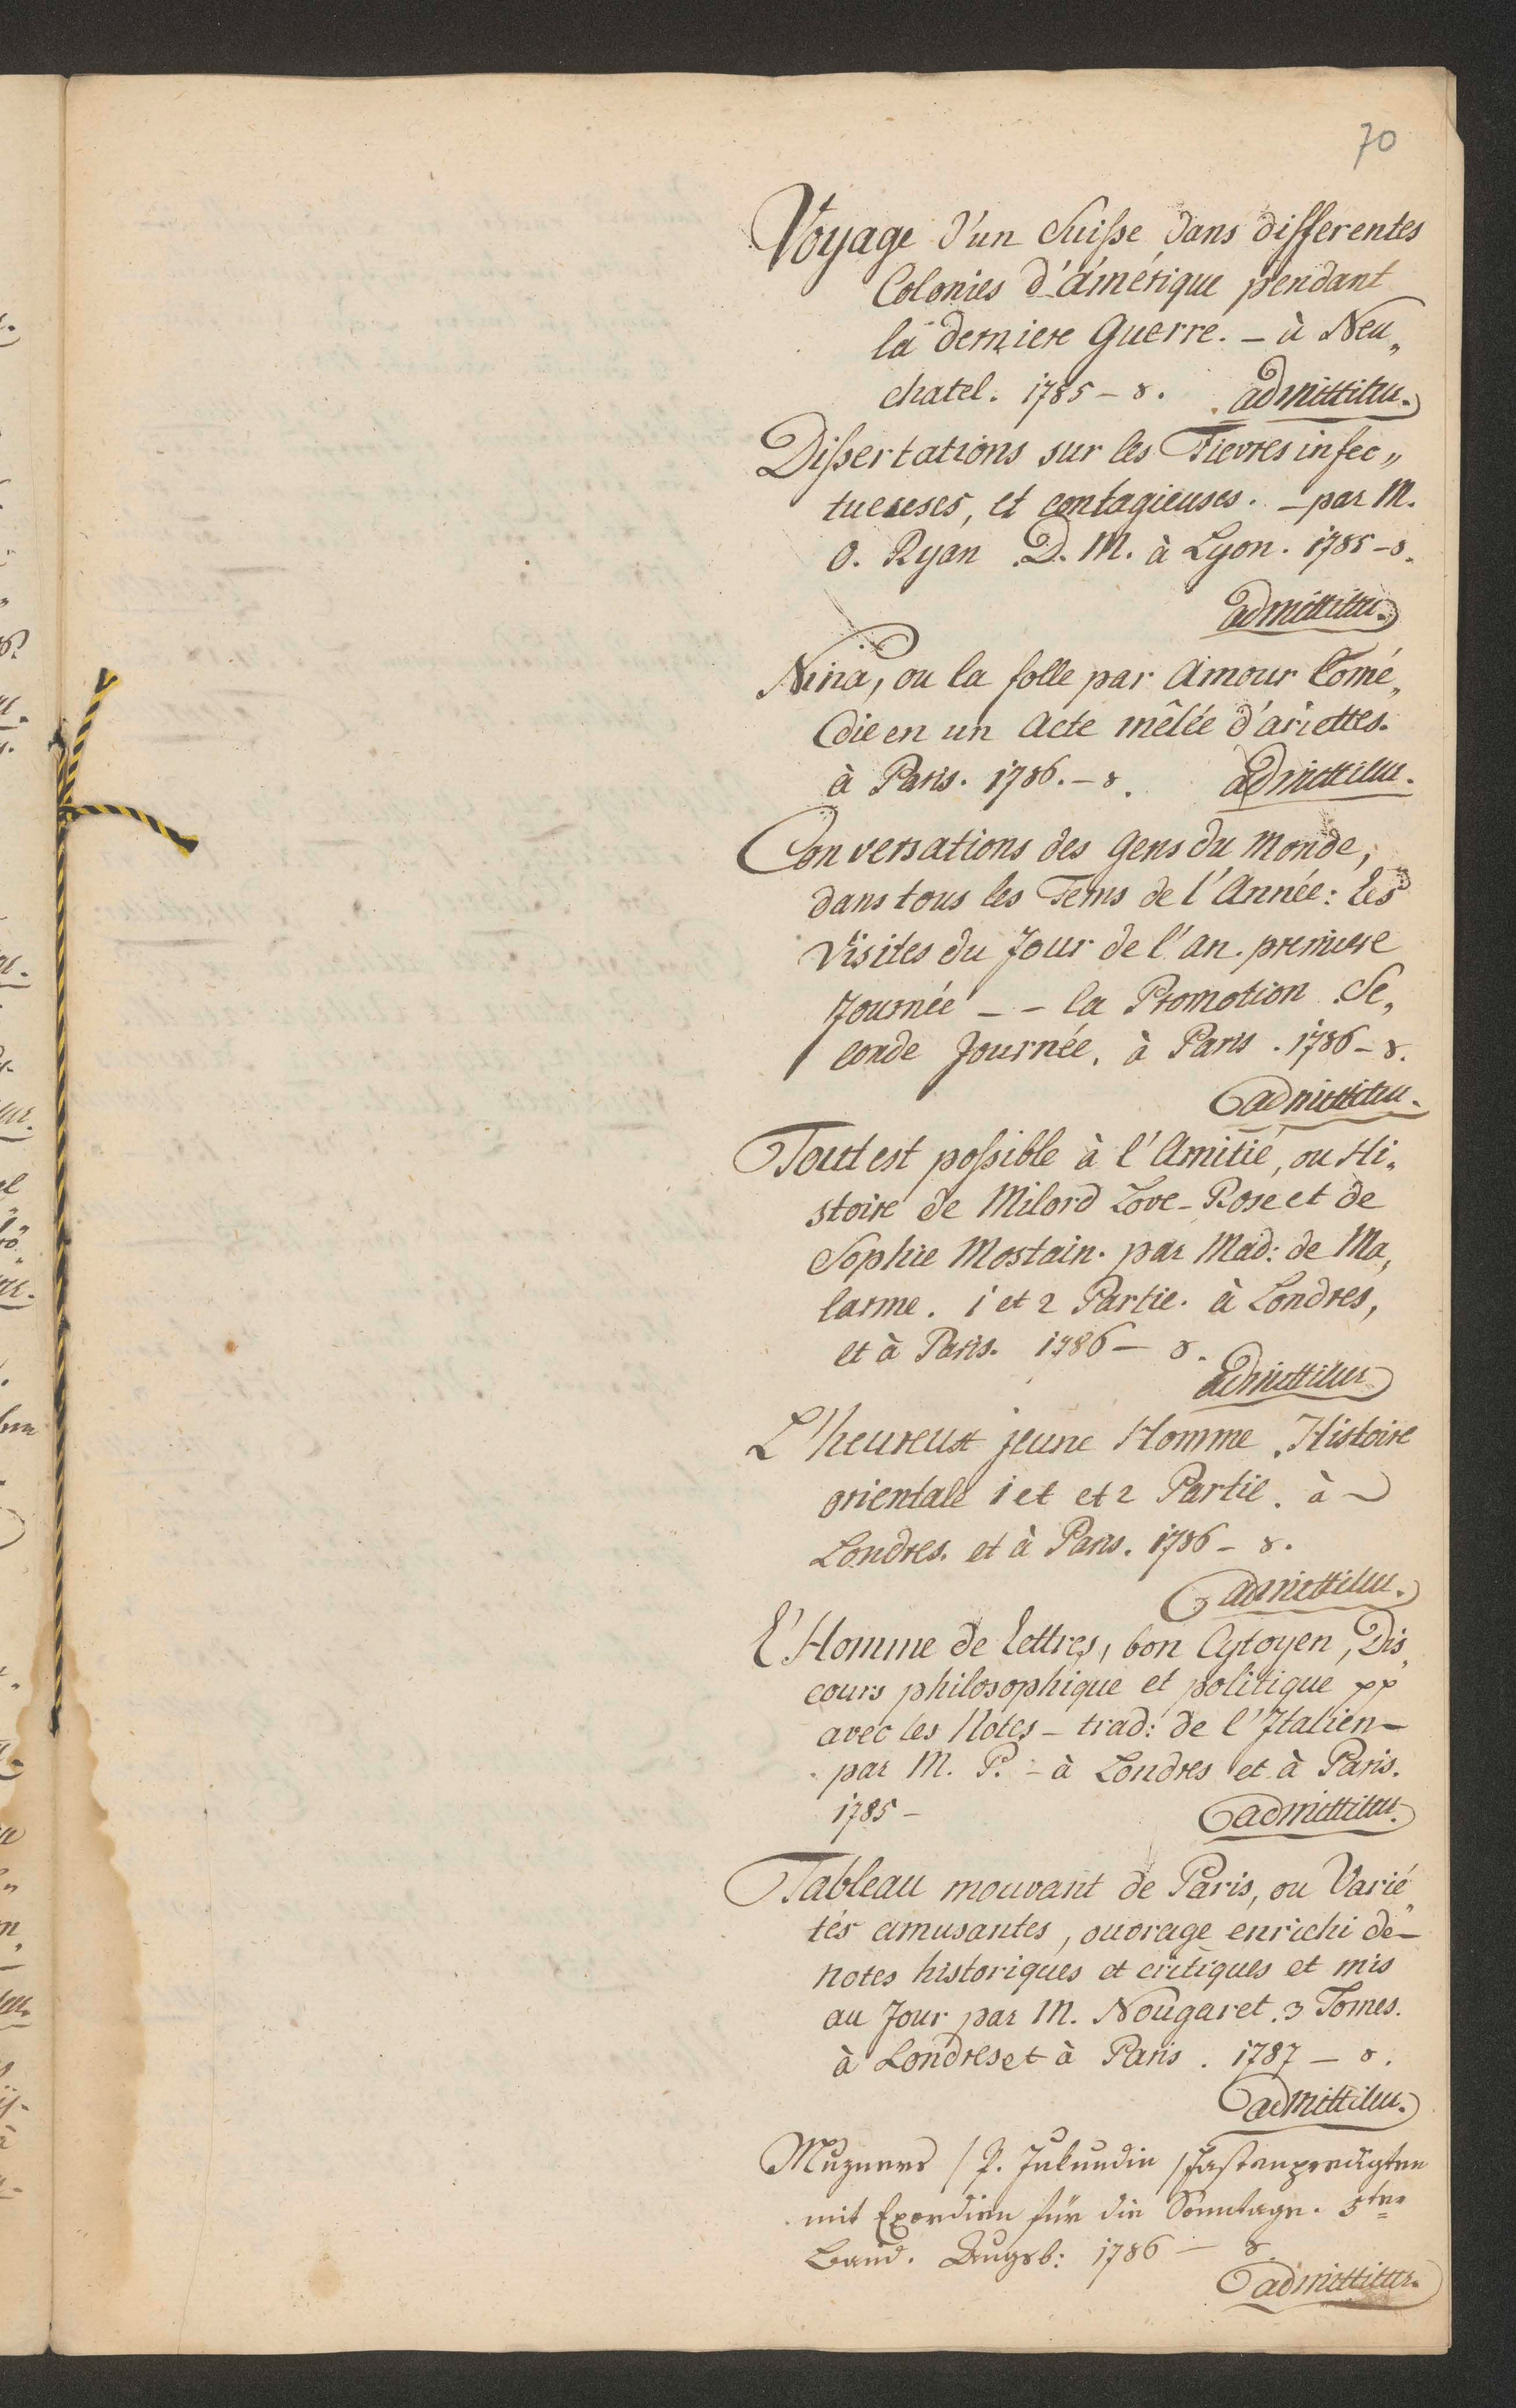 70
Voyage d'un Suiſse dans differentes
Colonies d'amérique pendant
la derniere Guerre. – à Neu„
chatel. 1785 – 8. admittitur.
Diſsertations sur les Fievres infec„
tueuses, et contagieuses. – par M.
O. Ryan D. M. à Lyon. 1785 – 8.
admittitur.
Nina, ou la folle par Amour Comé„
die en un Acte mêlée d'ariettes.
à Paris. 1786. – 8. admittitur.
Conversations des Gens du Monde,
dans tous les Tems de l'Année: les
Visites du Jour de l'an. premiere
Journée – – la Promotion Se„
conde Journée, à Paris. 1786 – 8.
admittitur.
Tout est poſsible à l'Amitié, ou Hi„
stoire de Milord Love-Rose et de
Sophie Mostain. par Mad: de Ma„
larme. 1 et 2 Partie. à Londres,
et à Paris. 1786 – 8.
admittitur
L'heureux jeune Homme. Histoire
orientale 1 et et 2 Partie. à
Londres. et à Paris. 1786 – 8.
admittitur.
L'Homme de lettres, bon Cytoyen, Dis„
cours philosophique et politique pp
avec les Notes – trad: de l'Italien –
par M. P. – à Londres et à Paris.
1785 – admittitur.
Tableau mouvant de Paris, ou Varié„
tés amusantes, ouvrage enrichi de –
notes historiques et critiques et mis
au Jour par M. Nougaret. 3 Tomes.
à Londres et à Paris. 1787 – 8.
admittitur.
/ P. Jukundin / Fastenpredigten
mit Exordien für die Sonntage. 5ter
Band. Augsb: 1786 – 8.
admittitur.